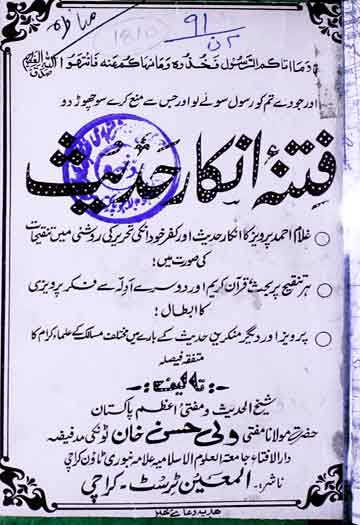 مناظرہ
۹۱
وَمَا اٰتَاكُمُ الرَّسُولُ فَخُذُوهُ وَمَا نَهَاكُمْ عَنْهُ فَانْتَهُوا
اور جو دے تم کو رسول سو لے لو اور جس سے منع کرے سو چھوڑ دو
فتنۂ انکار حدیث
غلام احمد پرویز کا انکار حدیث اور کفر خود انکی تحریر کی روشنی میں تنقیحات
کی صورت میں!
ہر تنقیح پر بحث، قرآن کریم اور دوسرے ادلہ سے فکر پرویزی
کا ابطال!
پرویز اور دیگر منکرین حدیث کے بارے میں مختلف مسالک کے علماء کرام کا
متفقہ فیصلہ
تالیف:
شیخ الحدیث و مفتی اعظم پاکستان
حضرت مولانا مفتی ولی حسن خان ٹونکی مدفیضہ
دارالافتاء جامعۃ العلوم الاسلامیہ علامہ بنوری ٹاؤن کراچی
ناشر:۔ المعین ٹرسٹ - کراچی
ھدیہ دعائے خیر